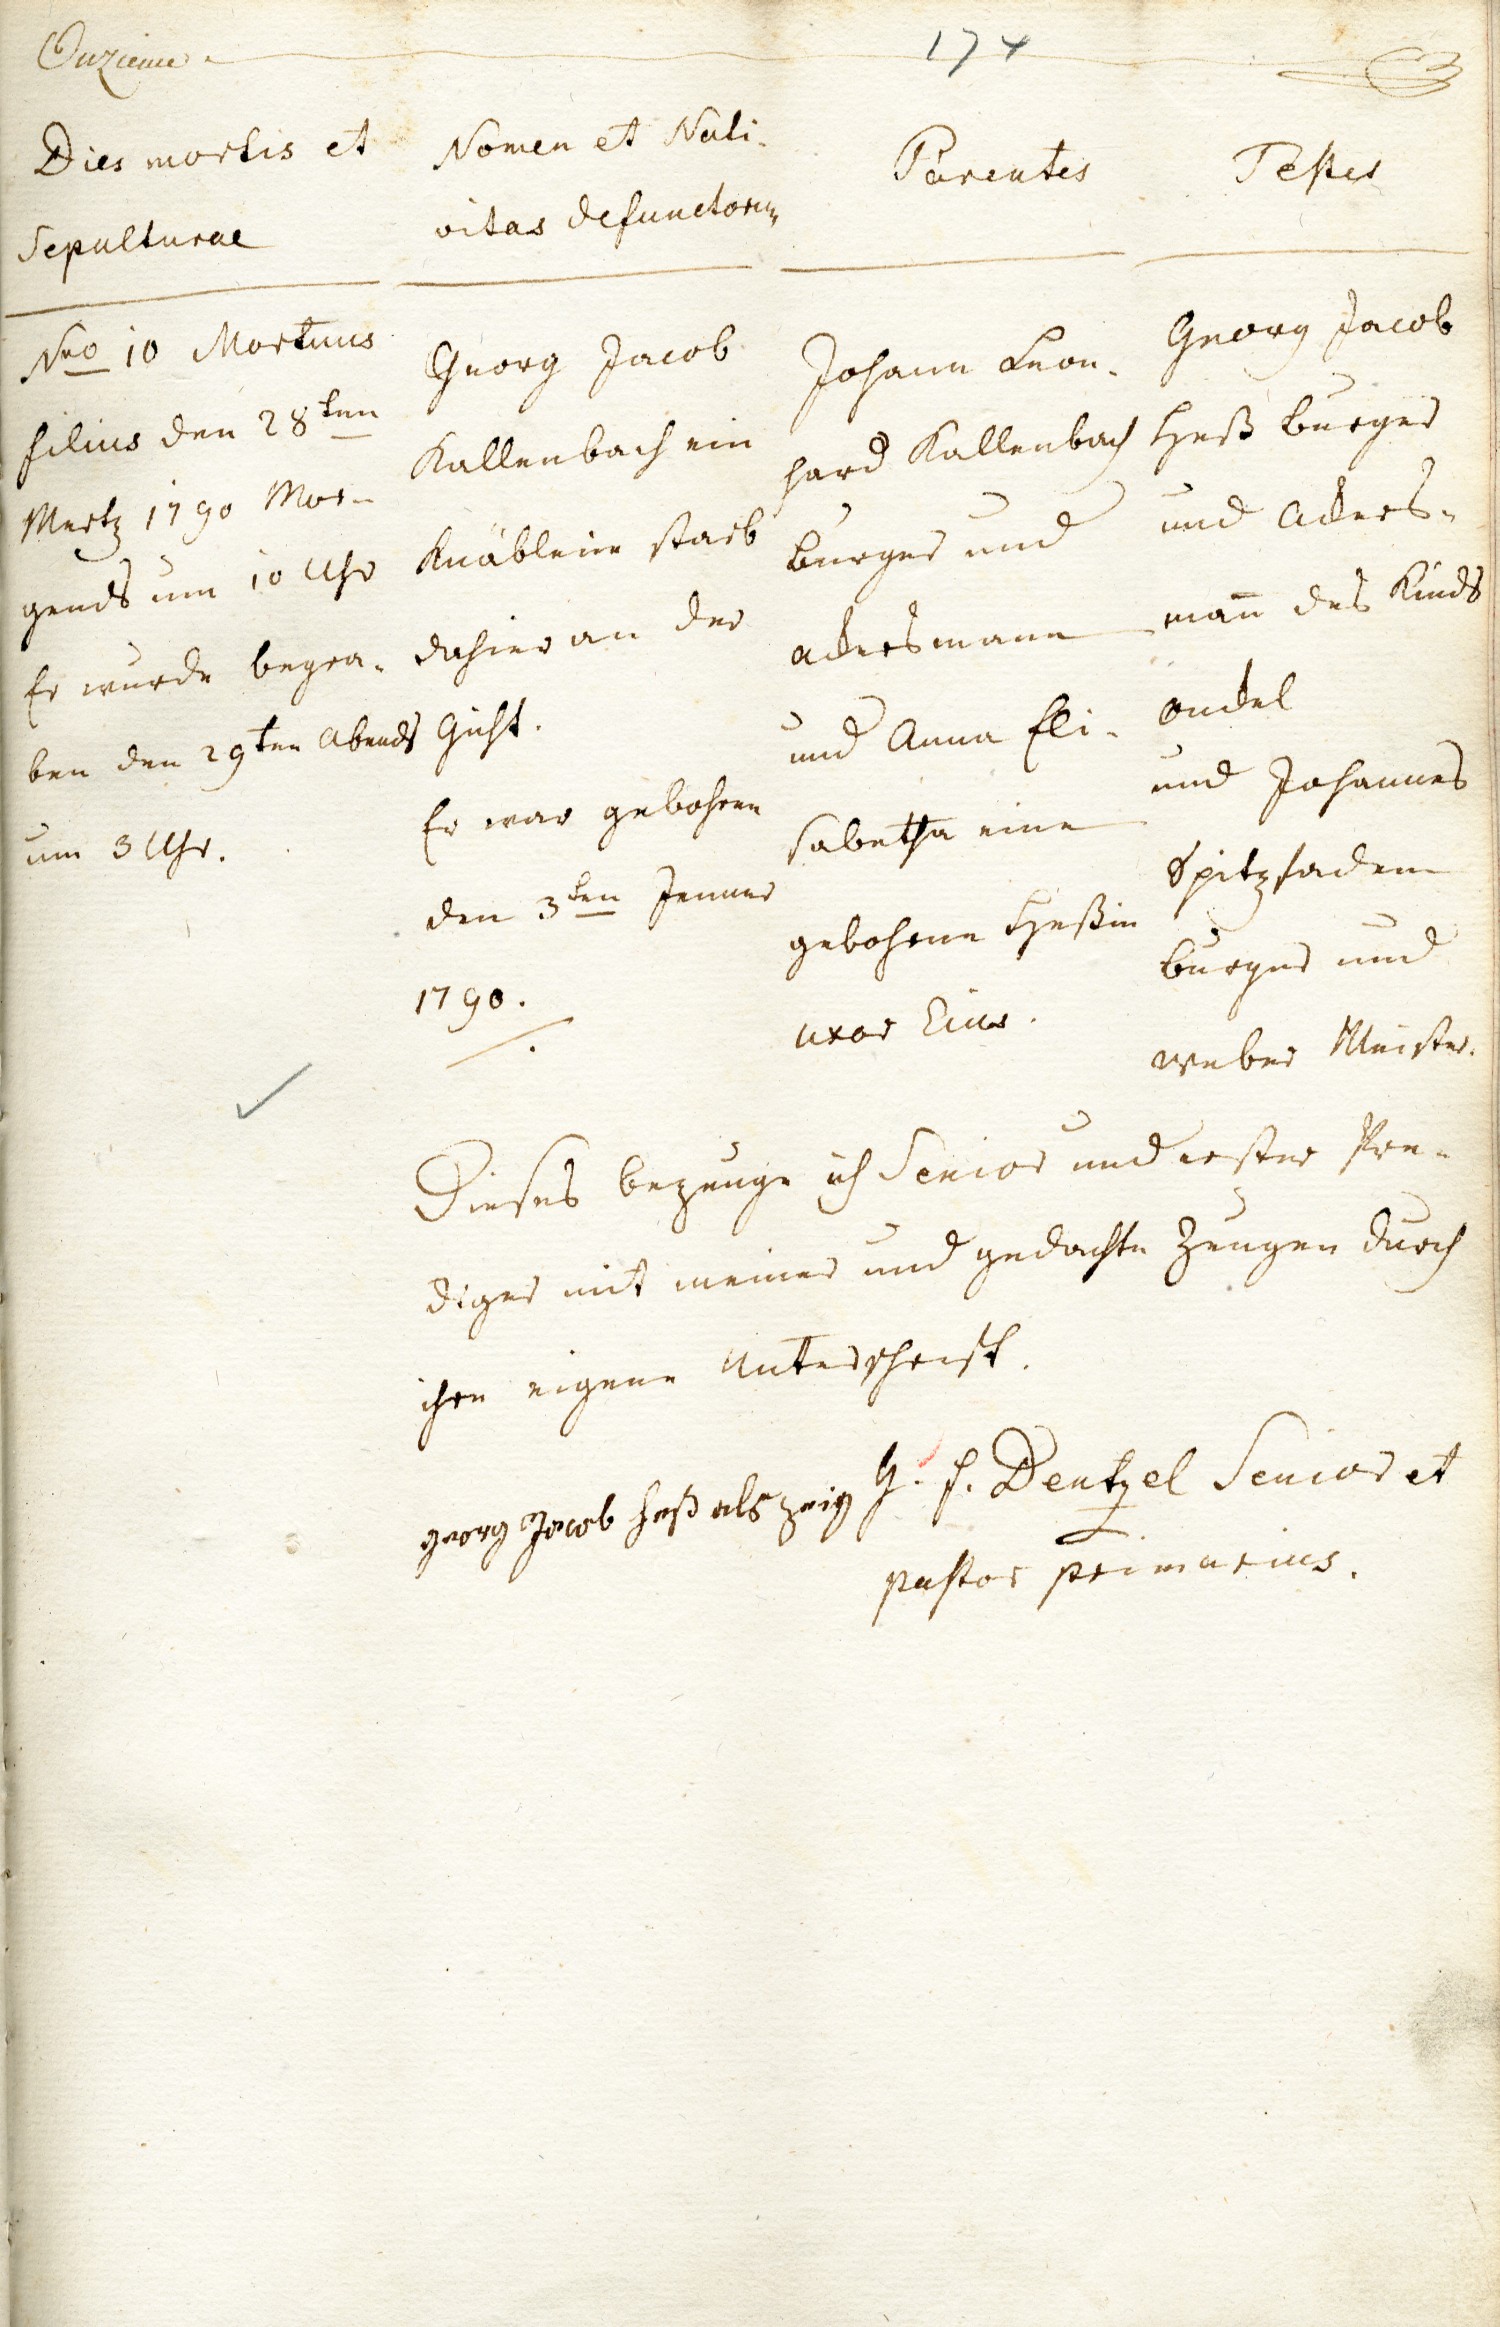 Onzieme.
174
Dies mortis et
Sepulturae
Nro 10 Mortuus
filius den 28ten
Mertz 1790 Mor-
gends um 10 Uhr
Er wurde begra-
ben den 29ten Abends
um 3 Uhr.
Nomen et Nati-
vitas defunctorum
Georg Jacob
Kallenbach ein
Knäblein starb
dahier an der
Gicht.
Er war gebohren
den 3ten Jenner
1790.
Parentes
Johann Leon-
hard Kallenbach
burger und
ackersmann
und Anna Eli-
sabetha eine
gebohrne Heßin
uxor Eius.
Testes
Georg Jacob
Heß burger
und ackers-
mañ des Kinds
onckel
und Johannes
Spitzfadem
burger und
weber Meister.
Dieses bezeuge ich Senior und erster Pre-
diger mit meiner und gedachte Zeugen durch
ihre eigene Unterschrifft.
georg Jacob heß als zeig
G. F. Dentzel Senior et
pastor primarius.